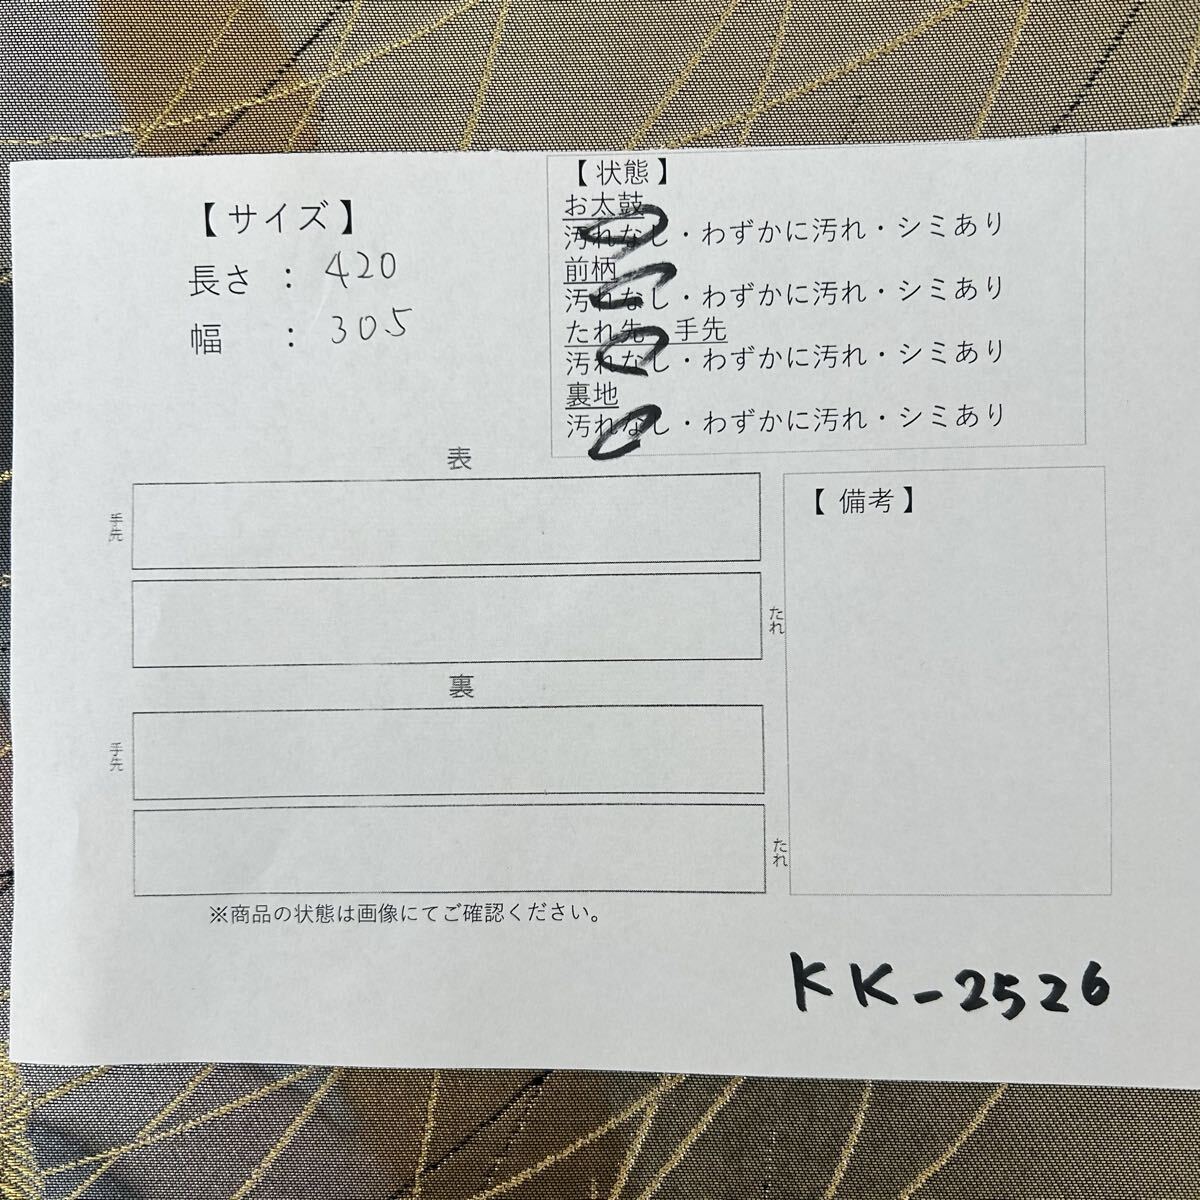 【 サイズ 】
長さ : 420
幅 : 305
【 状態 】
お太鼓
汚れなし・わずかに汚れ・シミあり
前柄
汚れなし・わずかに汚れ・シミあり
たれ先 手先
汚れなし・わずかに汚れ・シミあり
裏地
汚れなし・わずかに汚れ・シミあり
表
手先
たれ
裏
手先
たれ
【 備考 】
※商品の状態は画像にてご確認ください。
KK-2526